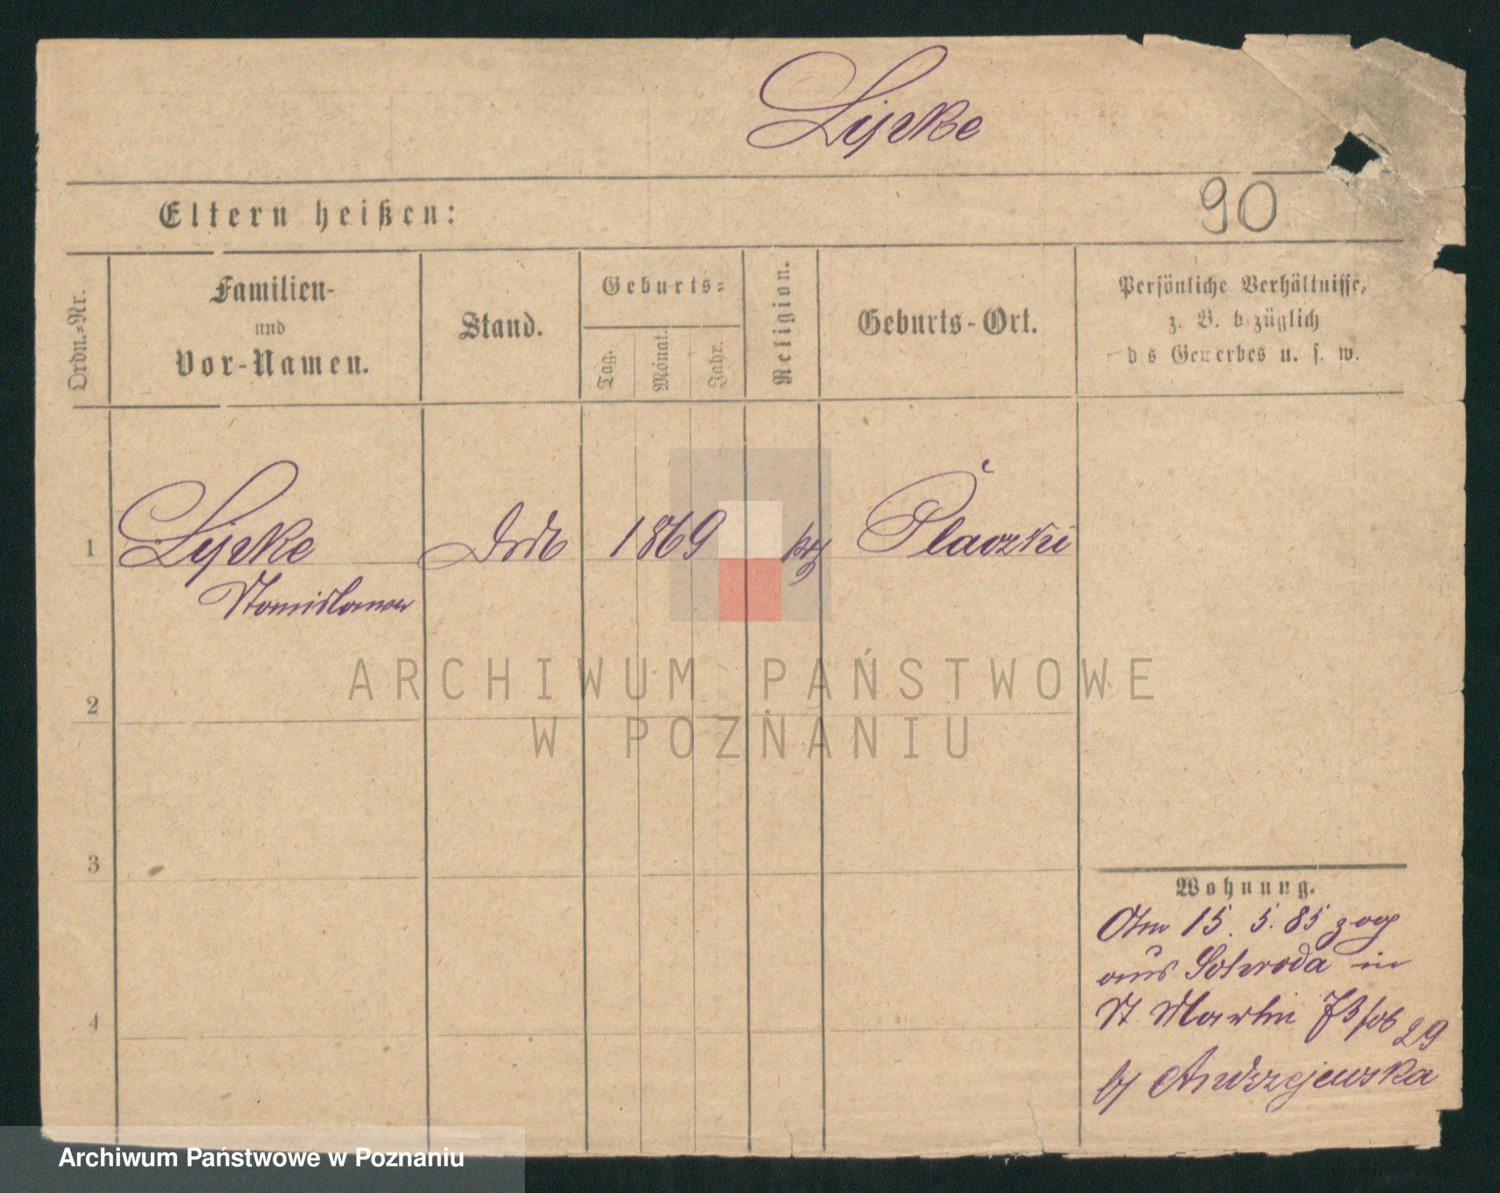 Lipke
90
Eltern heißen:
Ordn.-Nr.
Familien-
und
Vor-Namen.
Stand.
Geburts-
Tag.
Monat.
Jahr.
Religion.
Geburts-Ort.
Persönliche Verhältnisse,
z. B. bezüglich
des Gewerbes u. s. w.
1
Lipke
Stanislawa
1869
Placzki
2
3
4
Wohnung.
Am 15. 5. 85 zog
aus Schroda in
St Martin 73
29
b/ Andrzejewska
ARCHIWUM PAŃSTWOWE
W POZNANIU
Archiwum Państwowe w Poznaniu